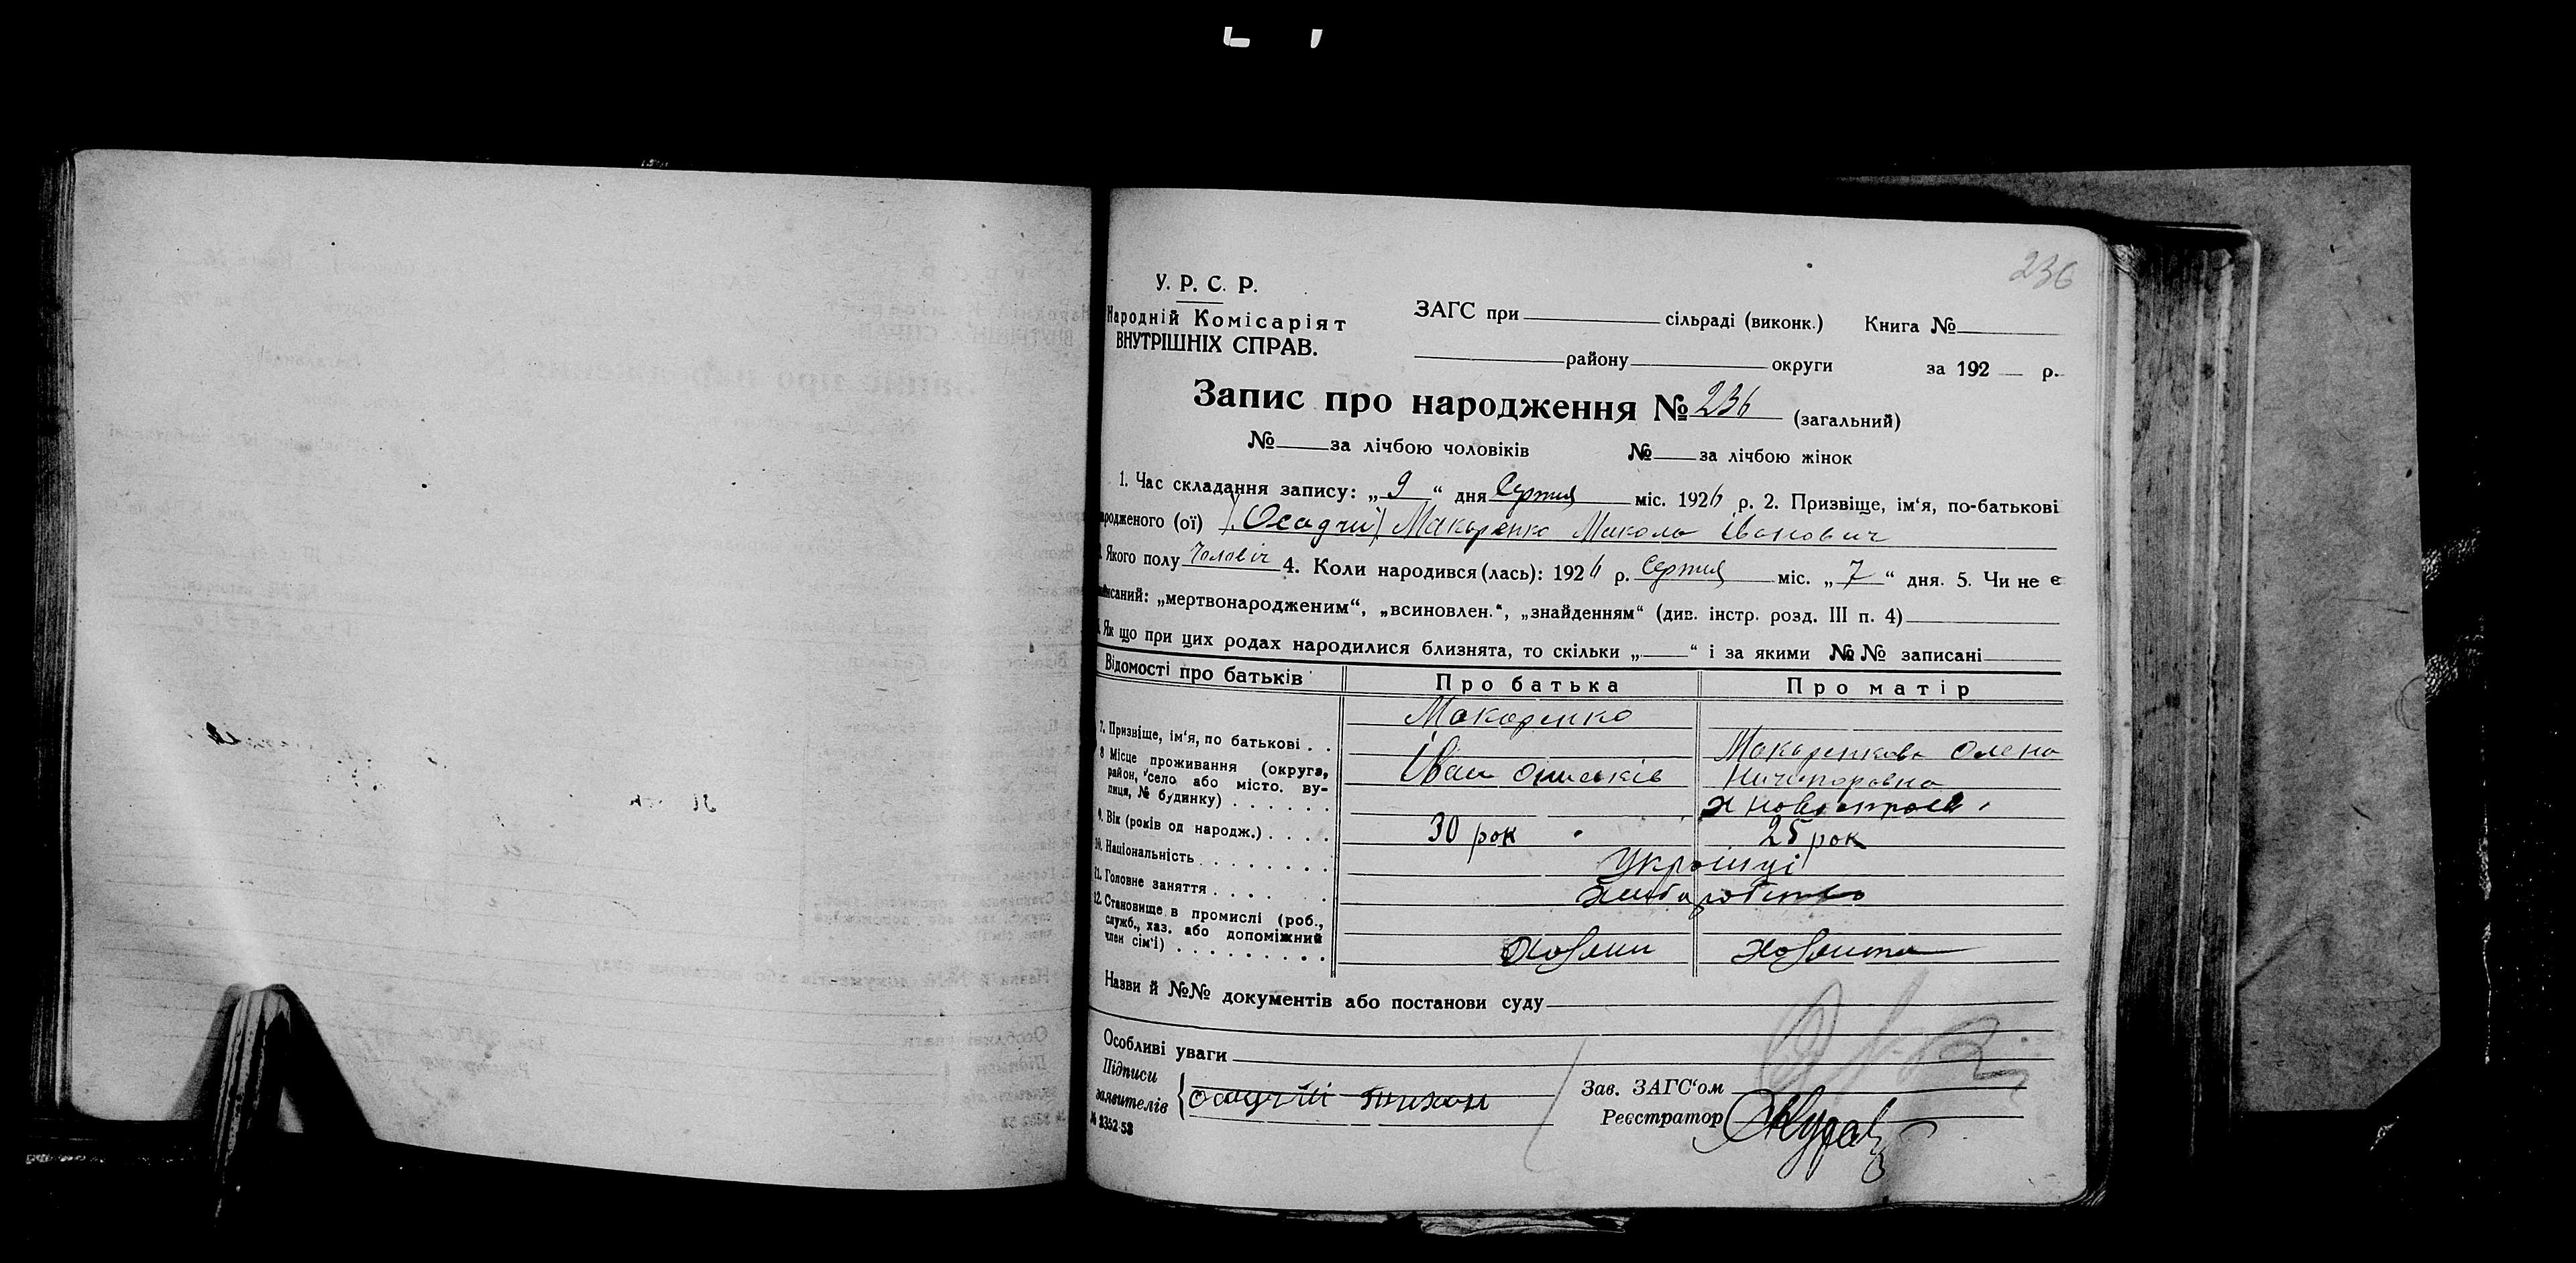 236
У. Р. С. Р.
Народній Комісаріят
ВНУТРІШНІХ СПРАВ.
ЗАГС при сільраді (виконк.) Книга №
району округи за 192 — р.
Запис про народження № 236 (загальний)
№ за лічбою чоловіків № за лічбою жінок
1. Час складання запису: „ 9 “ дня Серпня міс. 1926 р. 2. Призвіще, ім‘я, по-батькові
народженого (ої) (Осадчий) Макаренко Микола Іванович
Якого полу Чоловіч 4. Коли народився (лась): 1926 р. Серпня міс. „ 7 “ дня. 5. Чи не є
записаний: „мертвонародженим“, „всиновлен.“, „знайденням“ (див. інстр. розд. III п. 4)
Як що при цих родах народилися близнята, то скільки „ “ і за якими №№ записані
Відомості про батьків Про батька Про матір
7. Призвіще, ім‘я, по батькові . . Макаренко Іван
Макаренкова Олена Ничипоровна
8 Місце проживання (округа,
район, село або місто. ву-
лиця, № будинку) . . . . . .
9. Вік (років од народж.) . . . . 30 рок 25 рок
10. Національність . . . . . . . Українці
11. Головне заняття . . . . . Хліборобство
12. Становище в промислі (роб.,
служб., хаз. або допоміжний
член сім‘ї) . . . . . . . . . Хозяин Хозяйка
Назви й №№ документів або постанови суду
Особливі уваги
Підписи
заявителів { Осадчий Тихон
Зав. ЗАГС‘ом
Реєстратор
№ 2352-53